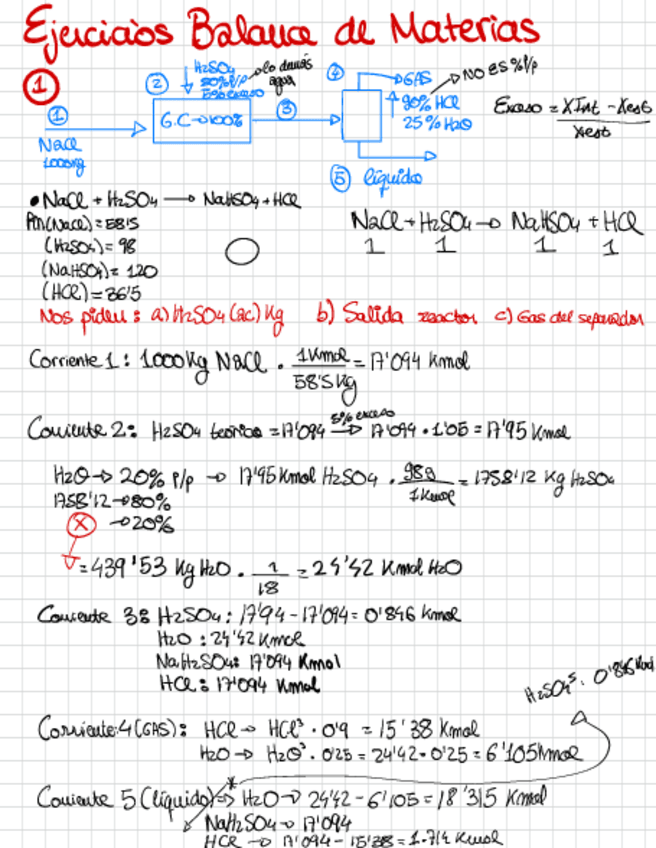 Ejercicios Balance de Materias
①
① NaCl 1000kg
② H₂SO₄ 80% P/p → lo demás agua
5% exceso
G.C → 100%
③
④ → GAS → NO es % P/p
90% HCl
25% H₂O
⑤ líquido
Exceso = XInt - Xest / Xest
• NaCl + H₂SO₄ → NaHSO₄ + HCl
Pm(NaCl) = 58'5
(H₂SO₄) = 98
(NaHSO₄) = 120
(HCl) = 36'5
NaCl + H₂SO₄ → NaHSO₄ + HCl
1 1 1 1
Nos piden: a) H₂SO₄ (ac) Kg b) Salida reactor c) Gas del separador
Corriente 1: 1000Kg NaCl · 1Kmol / 58'5 Kg = 17'094 Kmol
Corriente 2: H₂SO₄ teórico = 17'094 5% exceso → 17'094 · 1'05 = 17'95 Kmol
H₂O → 20% P/p → 17'95 Kmol H₂SO₄ · 98g / 1Kmol = 1758'12 Kg H₂SO₄
1758'12 → 80%
X → 20%
= 439'53 Kg H₂O · 1 / 18 = 24'42 Kmol H₂O
Corriente 3: H₂SO₄: 17'94 - 17'094 = 0'846 Kmol
H₂O: 24'42 Kmol
NaH₂SO₄: 17'094 Kmol
HCl: 17'094 Kmol
H₂SO₄⁵: 0'846 Kmol
Corriente: 4 (GAS): HCl → HCl³ · 0'9 = 15'38 Kmol
H₂O → H₂O³ · 0'25 = 24'42 · 0'25 = 6'105 Kmol
Corriente 5 (líquido) ⇒ H₂O → 24'42 - 6'105 = 18'315 Kmol
NaH₂SO₄ → 17'094
HCl → 17'094 - 15'38 = 1.714 Kmol